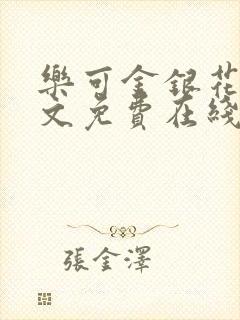 樂可金銀花
文免費在綫
張金澤